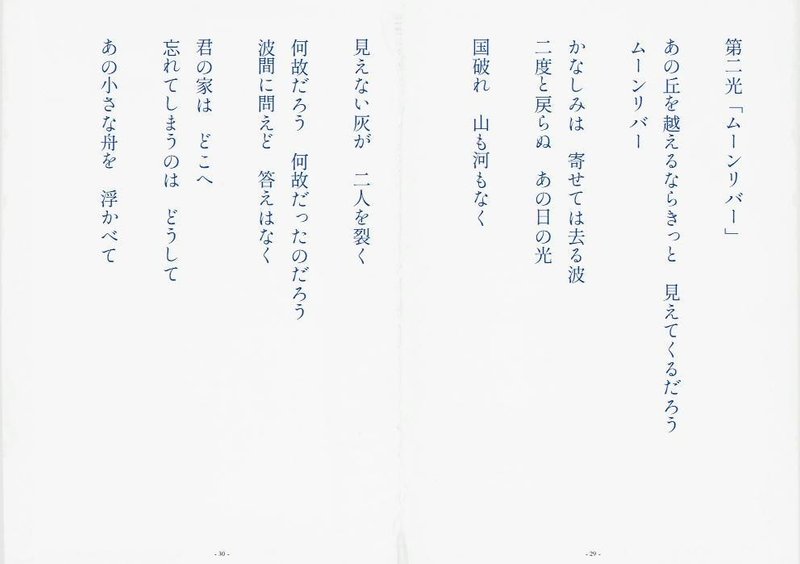 第二光「ムーンリバー」
あの丘を越えるならきっと　見えてくるだろう
ムーンリバー
かなしみは　寄せては去る波
二度と戻らぬ　あの日の光
国破れ　山も河もなく
- 29 -
見えない灰が　二人を裂く
何故だろう　何故だったのだろう
波間に問えど　答えはなく
君の家は　どこへ
忘れてしまうのは　どうして
あの小さな舟を　浮かべて
- 30 -